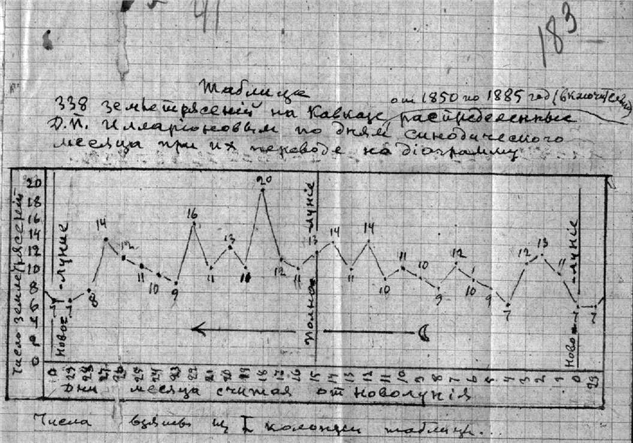 183
Таблица
338 землетрясенiй на Кавказе от 1850 по 1885 год (включительно)
распределенные
Д.П. Илларiоновым по дням синодического
месяца при их переводе на дiограмму
Число землетрясенiй
20
18
16
14
12
10
8
6
4
2
0
Ново-лунiе
Полно-лунiе
Ново-лунiе
7 8 14 12 11 10 9 16 11 13 11 20 12 11 13 14 11 14 9 11 10 8 12 10 9 7 12 13 11 7
0 29 28 27 26 25 24 23 22 21 20 19 18 17 16 15 14 13 12 11 10 9 8 7 6 5 4 3 2 1 0 29
Дни месяца считая от новолунiя
Числа взяты из I колонки таблицы...